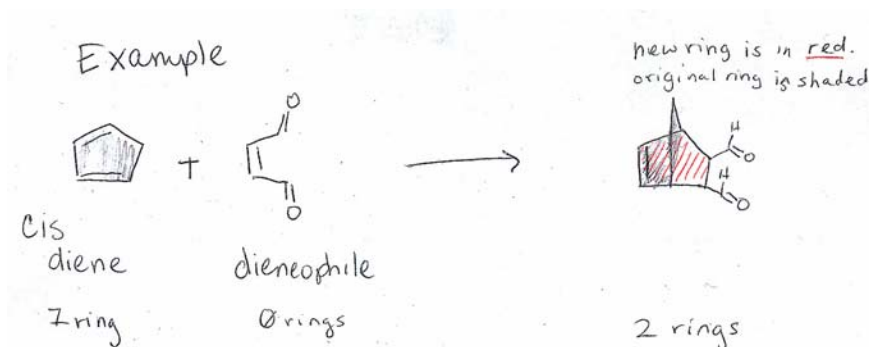 Example
new ring is in red.
original ring is shaded
O
O
+
H
O
H
O
cis
diene
dieneophile
1 ring
0 rings
2 rings